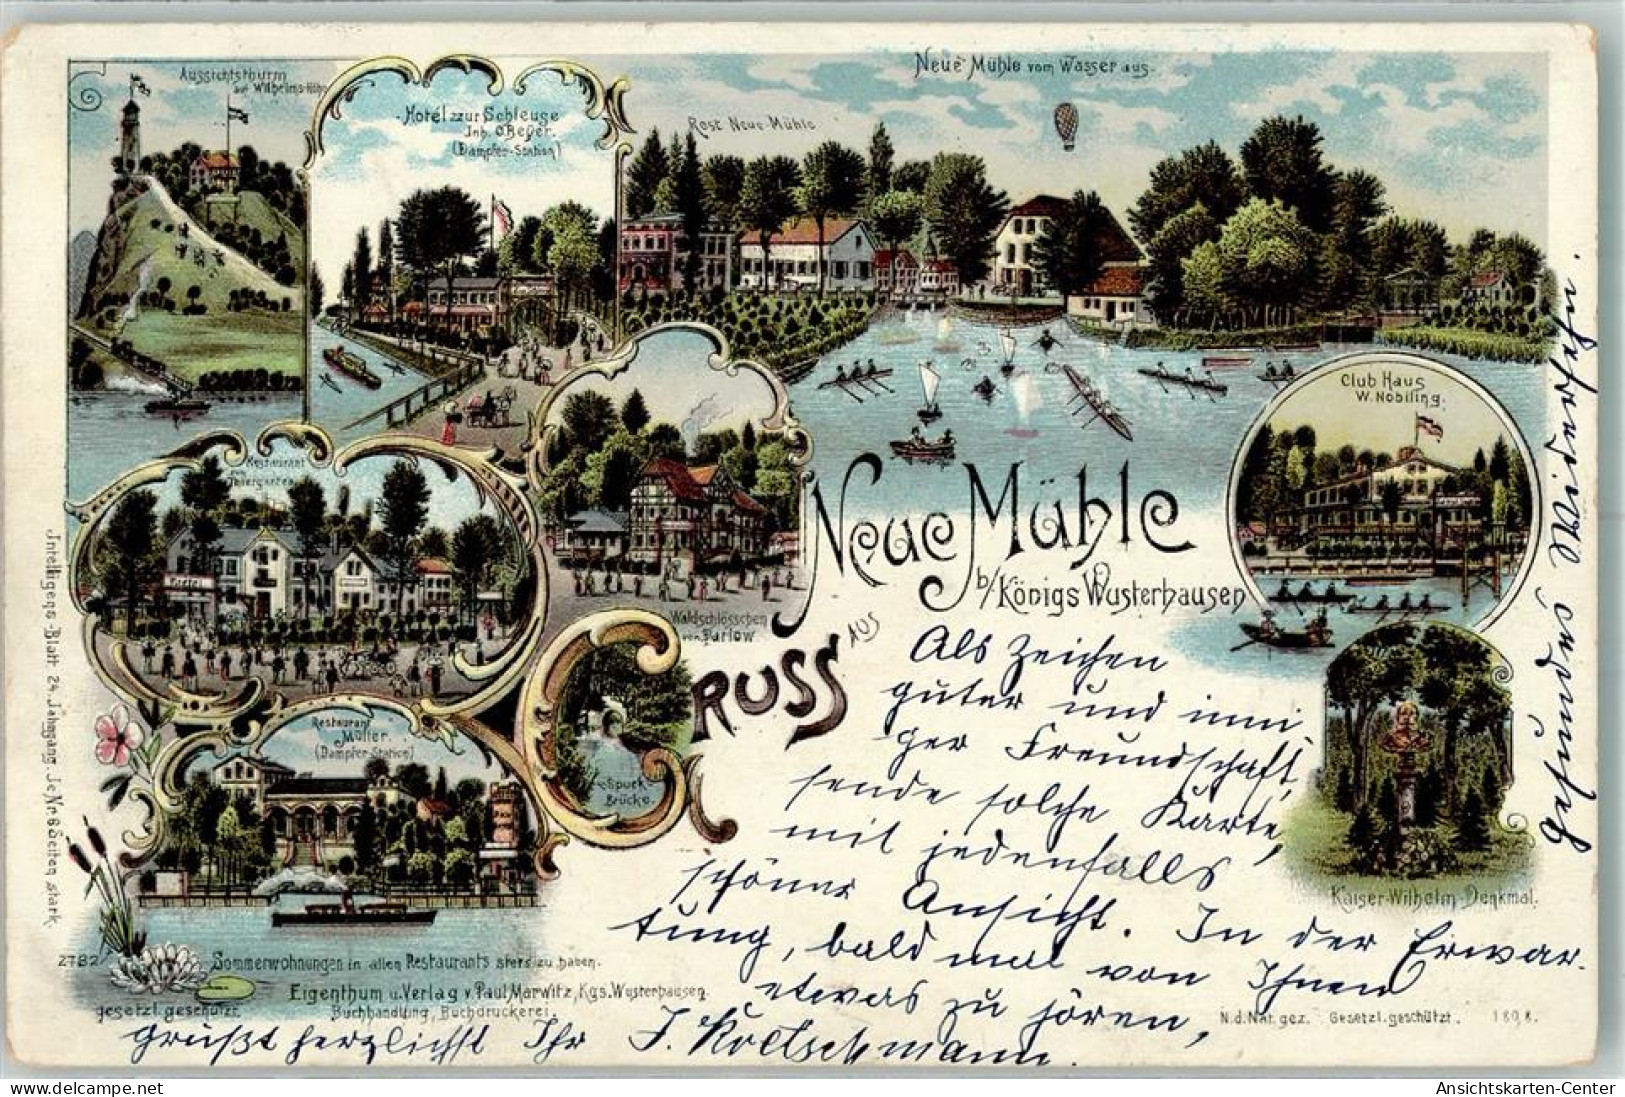 Aussichtsthurm
auf Wilhelms-Höhe
Hotel zzur Schleuse
Inh. O. Beyer.
(Dampfer-Station)
Neue Mühle vom Wasser aus.
Rest Neue-Mühle
Club Haus
W. Nobiling.
Restaurant
Thiergarten
Waldschlösschen
von Barlow
Neue Mühle
b/Königs Wusterhausen
Gruss aus
Restaurant
Müller.
(Dampfer-Station)
Spuck-
Brücke.
Kaiser-Wilhelm-Denkmal.
Intelligens Blatt 24. Jahrgang. Je Nr. 6 Seiten stark.
2782
Sommerwohnungen in allen Restaurants stets zu haben.
Eigenthum u. Verlag v. Paul Marwitz, Kgs. Wusterhausen.
Buchhandlung, Buchdruckerei.
gesetzl. geschützt.
N. d. Nat. gez. Gesetzl. geschützt. 1898.
Als Zeichen
guter und inni
ger Freundschaft
sende solche Karte,
mit jedenfalls
schöner Ansicht. In der Erwar-
tung, bald mal von Ihnen
etwas zu hören,
grüßt herzlichst Ihr
gesundes Wiedersehn.
Ansichtskarten-Center